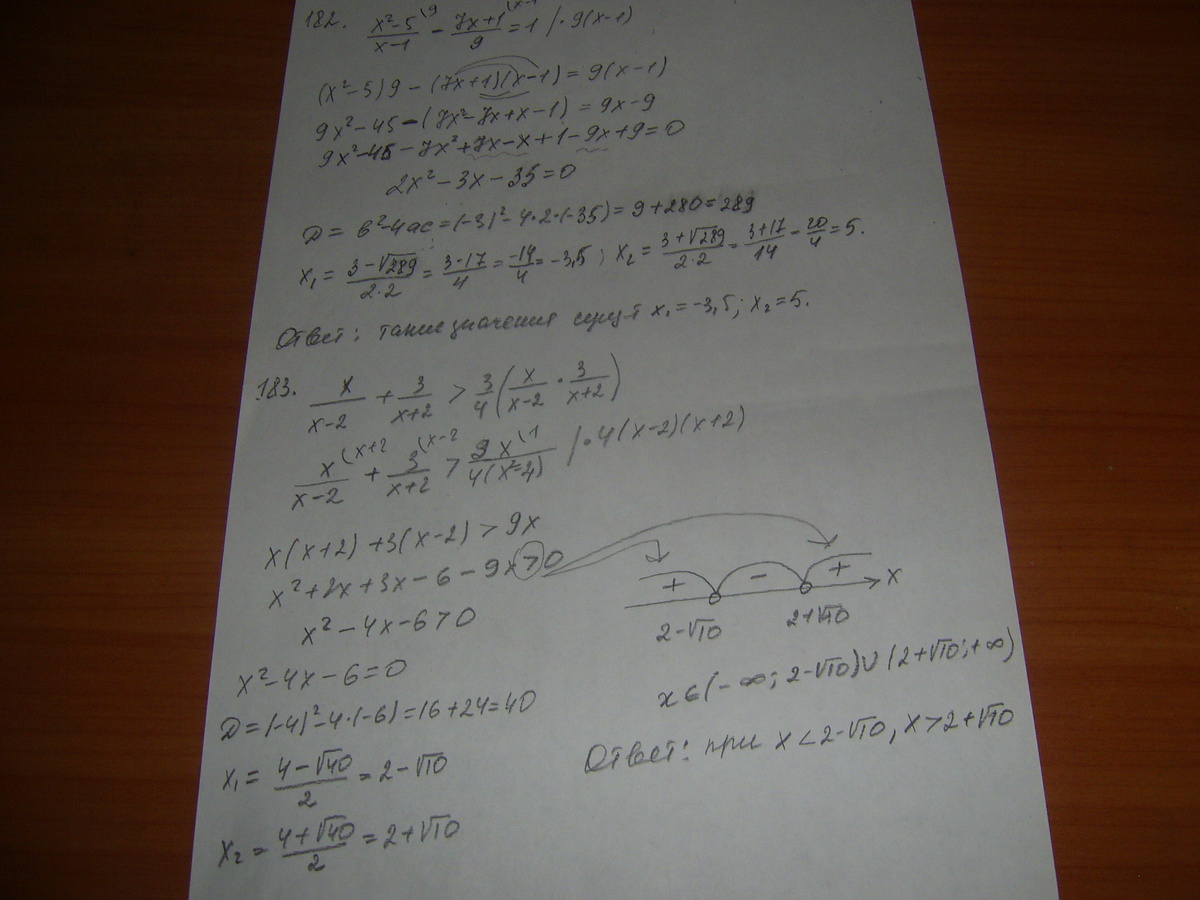 182. (x²-5)/(x-1) \9 - (7x+1)/9 \x-1 = 1 /·9(x-1)
(x²-5)9-(7x+1)(x-1)=9(x-1)
9x²-45-(7x²-7x+x-1)=9x-9
9x²-45-7x²+7x-x+1-9x+9=0
2x²-3x-35=0
D= b²-4ac=(-3)²-4·2·(-35)=9+280=289
x₁= (3-√289)/(2·2) = (3-17)/4 = -14/4 = -3,5 ; x₂= (3+√289)/(2·2) = (3+17)/14 - 20/4 = 5.
Ответ: такие значения x₁=-3,5; x₂=5.
183. x/(x-2) + 3/(x+2) > 3/4 (x/(x-2) · 3/(x+2))
x/(x-2) \x+2 + 3/(x+2) \x-2 > 9x/(4(x²-4)) \1 /·4(x-2)(x+2)
x(x+2)+3(x-2)>9x
x²+2x+3x-6-9x>0
x²-4x-6>0
x²-4x-6=0
D=(-4)²-4·(-6)=16+24=40
x₁= (4-√40)/2 = 2-√10
x₂= (4+√40)/2 = 2+√10
+ - + x
2-√10 2+√10
x∈(-∞; 2-√10)∪(2+√10;+∞)
Ответ: при x<2-√10, x>2+√10